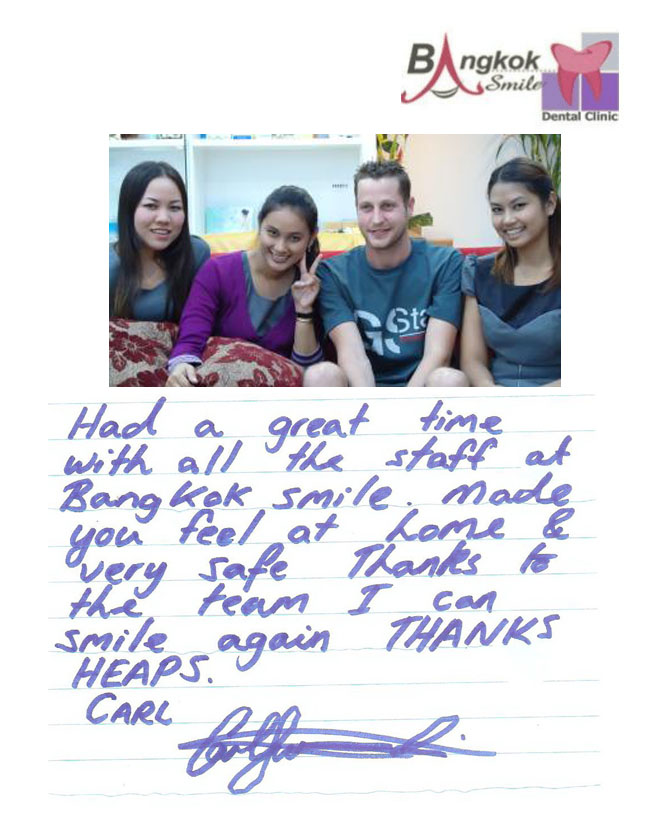 BAngkok
Smile
Dental Clinic
GSta
Had a great time
with all the staff at
BangKoK smile. Made
you feel at home &
very safe Thanks to
the team I can
smile again THANKS
HEAPS.
CARL